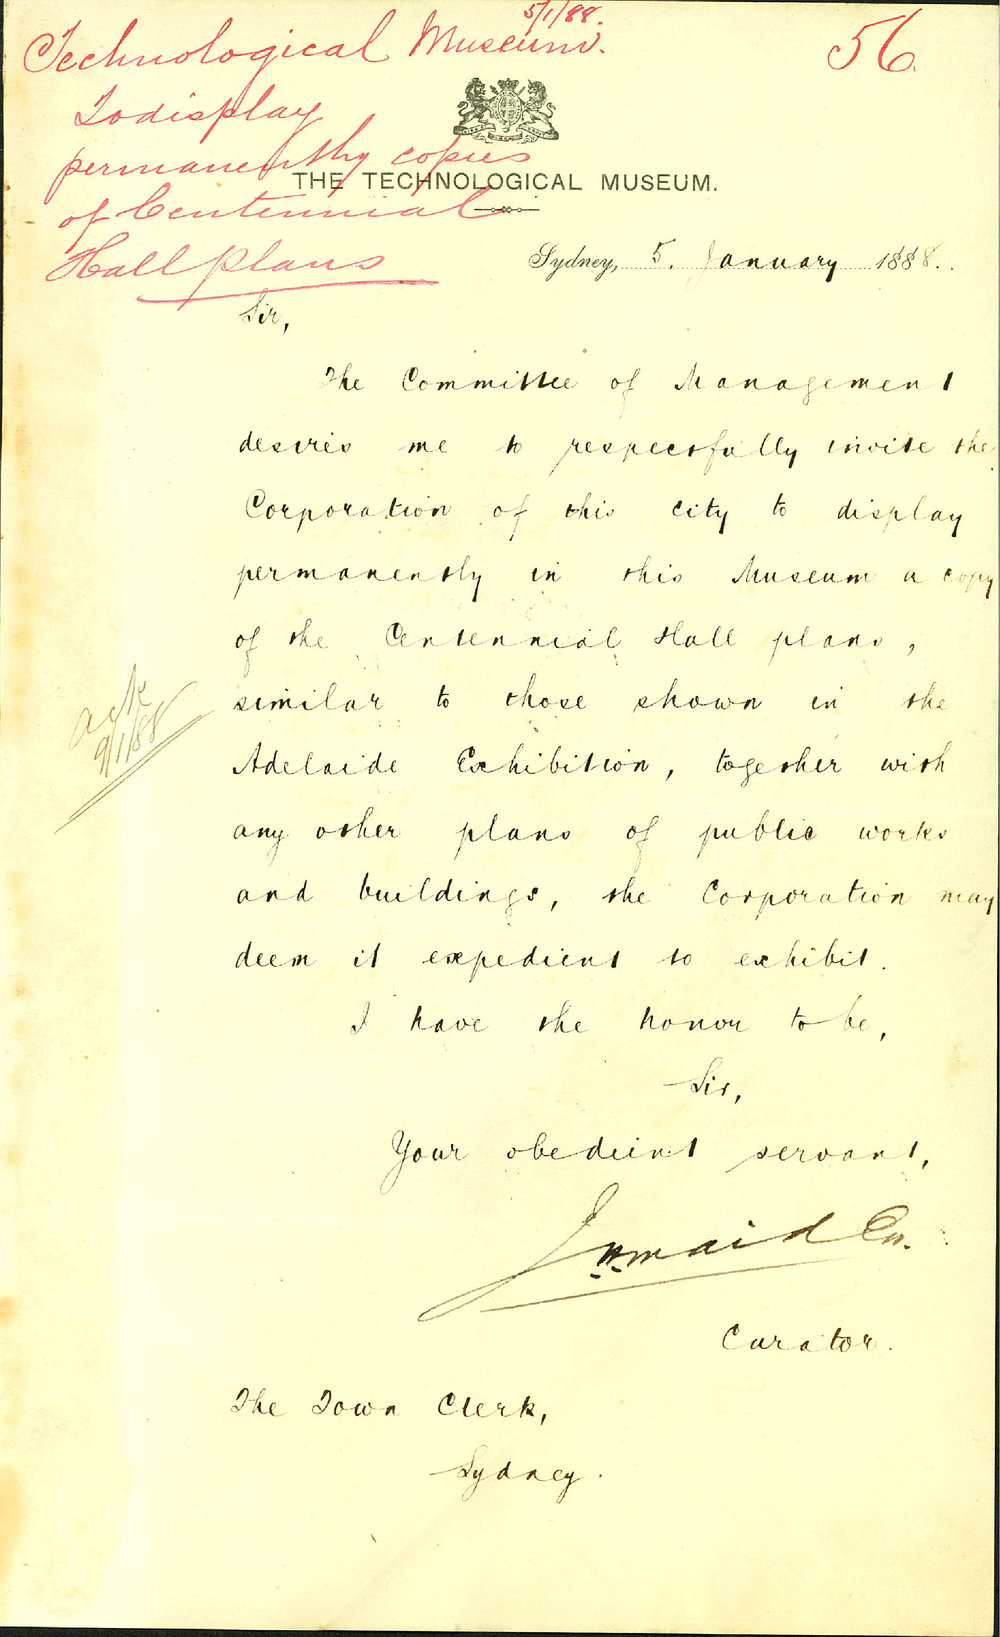 5/1/88.
Technological Museum.
56.
To display
permanently copies
of Centennial
Hall plans
THE TECHNOLOGICAL MUSEUM.
Sydney, 5. January 1888.
Sir,
The Committee of Management
desires me to respectfully invite the
Corporation of this city to display
permanently in this Museum a copy
of the Centennial Hall plans,
similar to those shown in the
Adelaide Exhibition, together with
any other plans of public works
and buildings, the Corporation may
deem it expedient to exhibit.
ack
9/1/88
I have the honor to be,
Sir,
Your obedient servant,
Curator.
The Town Clerk,
Sydney.